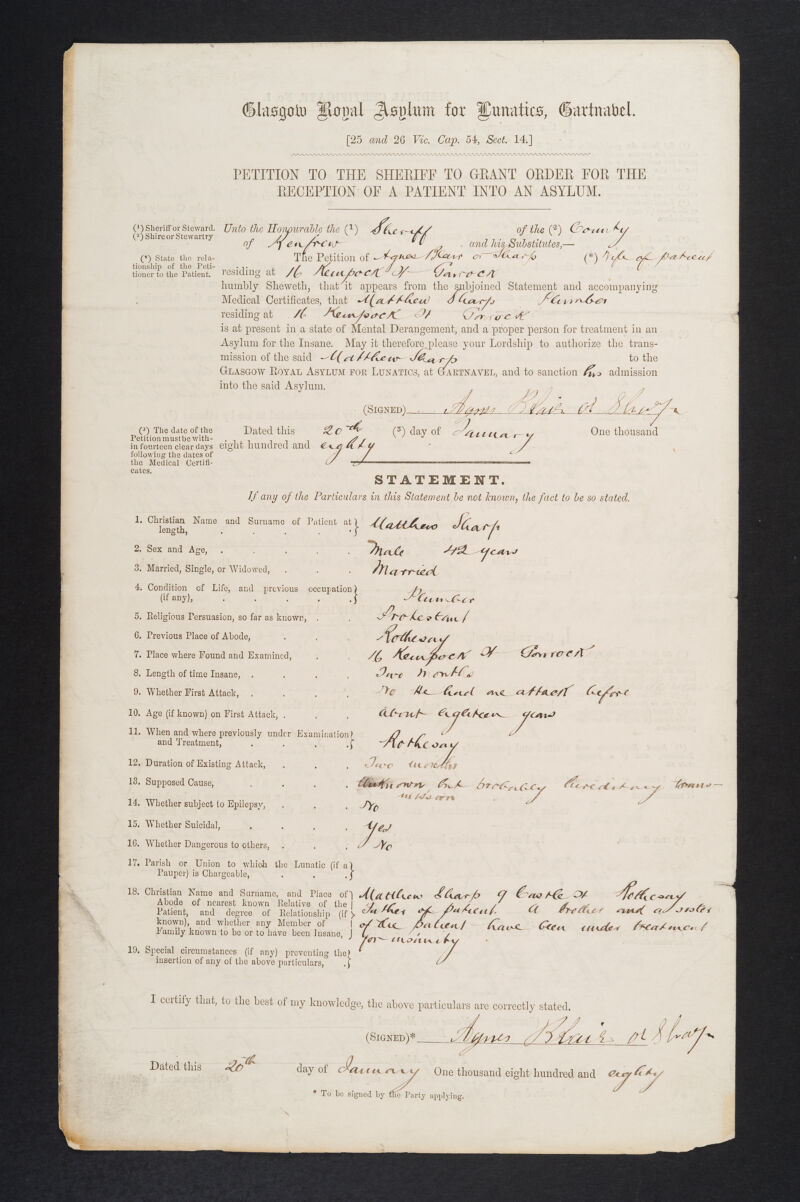 Glasgow Royal Asylum for Lunatics, Gartnabel.
[25 and 26 Vic. Cap. 54, Sect. 14.]
PETITION TO THE SHERIFF TO GRANT ORDER FOR THE
RECEPTION OF A PATIENT INTO AN ASYLUM.
(¹) Sheriff or Steward.
(²) Shire or Stewartry
Unto the Honourable the (¹) Sheriff of the (²) County
of Renfrew and his Substitutes,—
(*) State the rela-
tionship of the Peti-
tioner to the Patient.
The Petition of Agnes Blair or Sharp (*) Wife of patient
residing at 16 Kempock St Gourock
humbly Sheweth, that it appears from the subjoined Statement and accompanying
Medical Certificates, that Matthew Sharp Plumber
residing at 16 Kempock St Gourock
is at present in a state of Mental Derangement, and a proper person for treatment in an
Asylum for the Insane. May it therefore please your Lordship to authorize the trans-
mission of the said Matthew Sharp to the
GLASGOW ROYAL ASYLUM FOR LUNATICS, at GARTNAVEL, and to sanction his admission
into the said Asylum.
(SIGNED) Agnes Blair or Sharp
(³) The date of the
Petition must be with-
in fourteen clear days
following the dates of
the Medical Certifi-
cates.
Dated this 20th (³) day of January One thousand
eight hundred and eighty
STATEMENT.
If any of the Particulars in this Statement be not known, the fact to be so stated.
1. Christian Name and Surname of Patient at length, Matthew Sharp
2. Sex and Age, Male 42 years
3. Married, Single, or Widowed, Married
4. Condition of Life, and previous occupation (if any), Plumber
5. Religious Persuasion, so far as known, Protestant
6. Previous Place of Abode, Rothesay
7. Place where Found and Examined, 16 Kempock St Gourock
8. Length of time Insane, Two Months
9. Whether First Attack, No He had one attack before
10. Age (if known) on First Attack, About Eighteen years
11. When and where previously under Examination and Treatment, Rothesay
12. Duration of Existing Attack, Two months
13. Supposed Cause, Unknown but probably hereditary trans-
mission
14. Whether subject to Epilepsy, No
15. Whether Suicidal, Yes
16. Whether Dangerous to others, No
17. Parish or Union to which the Lunatic (if a
Pauper) is Chargeable,
18. Christian Name and Surname, and Place of
Abode of nearest known Relative of the
Patient, and degree of Relationship (if
known), and whether any Member of
Family known to be or to have been Insane,
Matthew Sharp 9 Castle St Rothesay
Father of patient. A brother and a sister
of the patient have been under treatment
for insanity
19. Special circumstances (if any) preventing the
insertion of any of the above particulars,
I certify that, to the best of my knowledge, the above particulars are correctly stated.
(SIGNED)* Agnes Blair or Sharp
Dated this 20th day of January One thousand eight hundred and eighty
* To be signed by the Party applying.